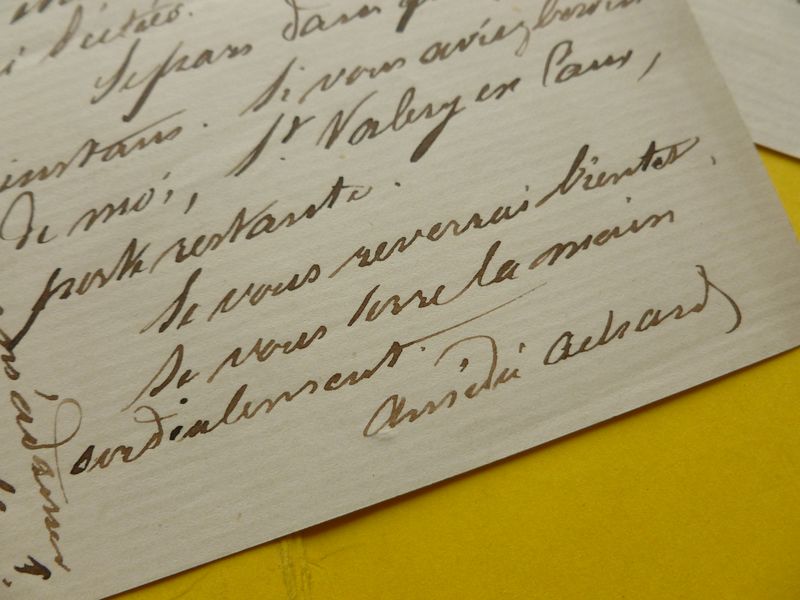 Je pars dans
instans. Si vous aviez besoin
de moi, St Valery en Caux,
poste restante.
Je vous reverrai bientôt,
Je vous serre la main
cordialement.
Amédée Achard